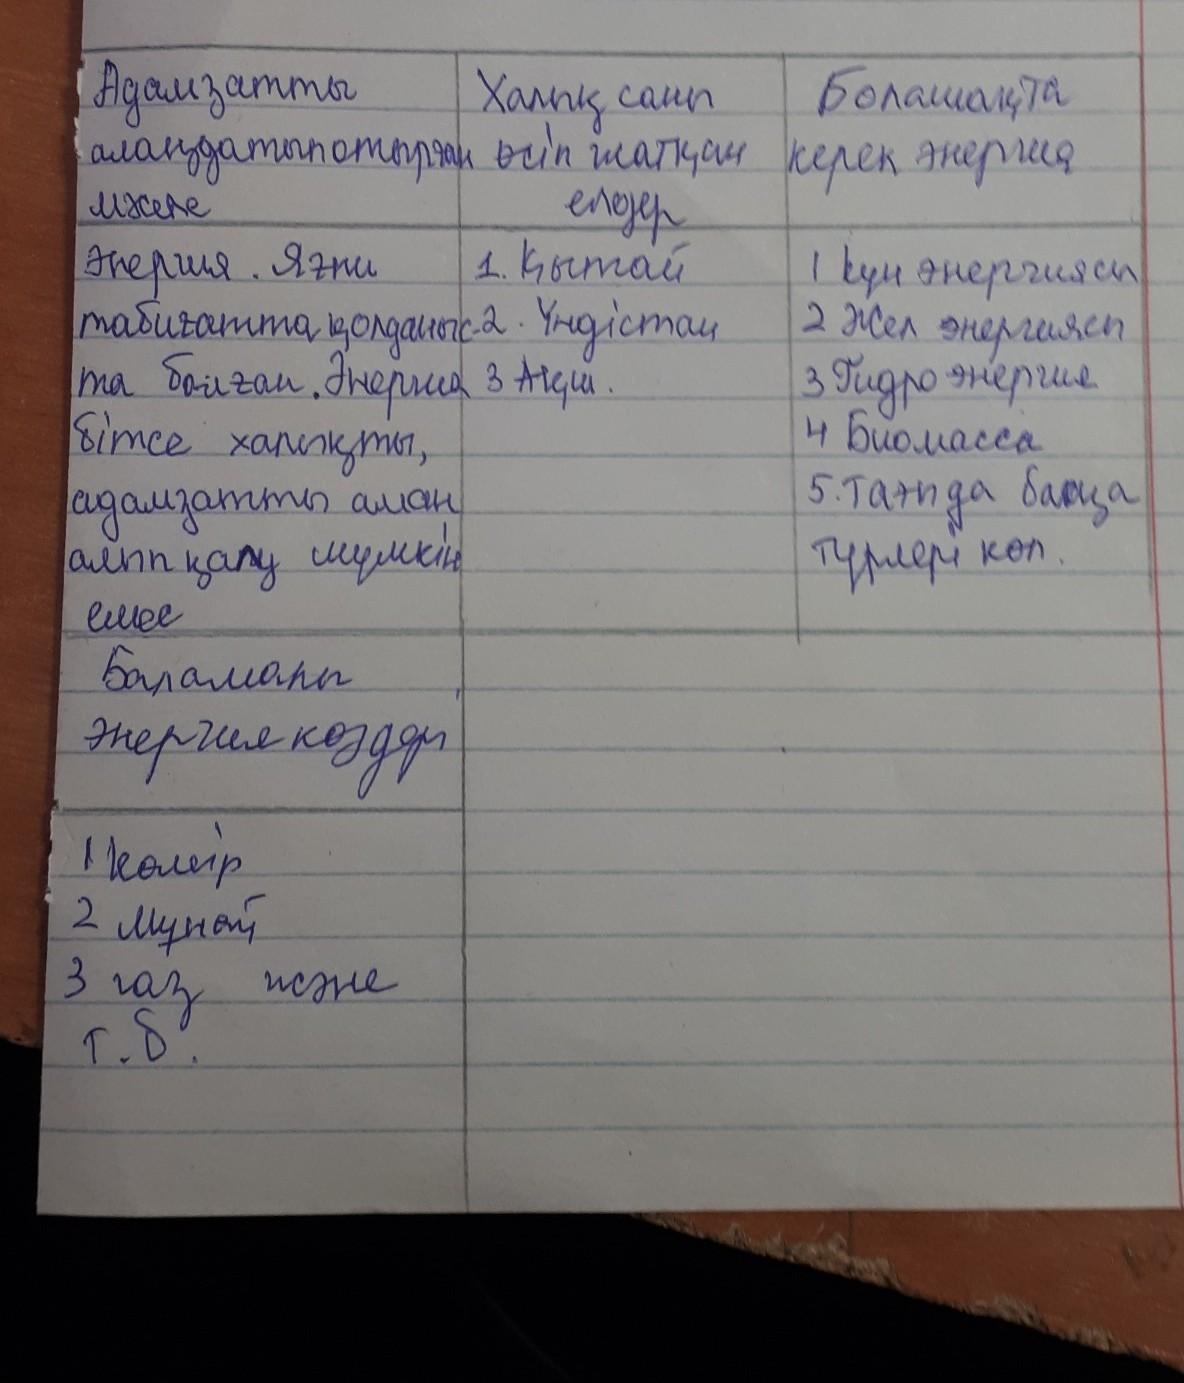 Адамзатты
алаңдатыпотырған
мәселе
Энергия. Яғни
табиғатта қолданыс-
та болған. Энергия
бітсе халықты,
адамзатты аман
алып қалу мүмкін
емес
Халық саны
өсіп жатқан
елдер
1. Қытай
2. Үндістан
3 Ақш.
Болашақта
керек энергия
1 Күн энергиясы
2 Жел энергиясы
3 Гидроэнергия
4 Биомасса
5. Тағыда басқа
түрлері көп.
Баламалы
энергия көздері
1 Көмір
2 Мұнай
3 газ және
т.б.